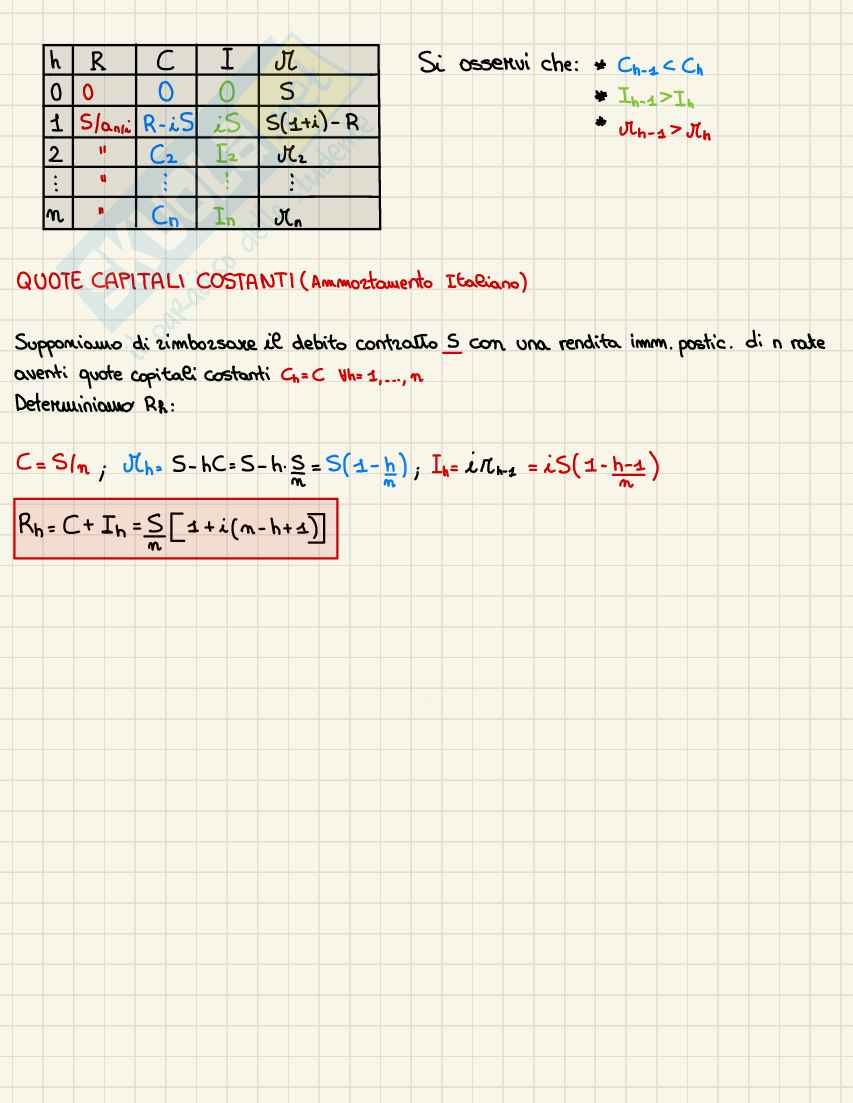 h R C I r
0 0 0 0 S
1 S/an⌉i R-iS iS S(1+i)-R
2 " C₂ I₂ r₂
⋮ " ⋮ ⋮ ⋮
n " Cₙ Iₙ rₙ
Si osservi che: * Cₕ₋₁ < Cₕ
* Iₕ₋₁ > Iₕ
* rₕ₋₁ > rₕ
QUOTE CAPITALI COSTANTI (Ammortamento Italiano)
Supponiamo di rimborsare il debito contratto S con una rendita imm. postic. di n rate
aventi quote capitali costanti Cₕ = C ∀h = 1, ..., n
Determiniamo Rₕ:
C = S/n ; rₕ = S - hC = S - h · S/n = S(1 - h/n) ; Iₕ = i rₕ₋₁ = iS(1 - (h-1)/n)
Rₕ = C + Iₕ = S/n [1 + i(n - h + 1)]